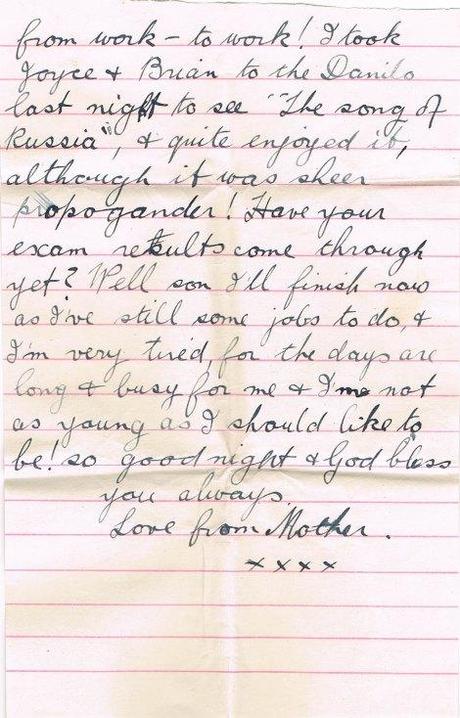 from work – to work! I took
Joyce & Brian to the Danilo
last night to see "The song of
Russia", & quite enjoyed it,
although it was sheer
propogander! Have your
exam results come through
yet? Well son I'll finish now
as I've still some jobs to do, &
I'm very tired, for the days are
long & busy for me & I'm not
as young as I should like to
be! so good night & God bless
you always.
Love from Mother.
xxxx